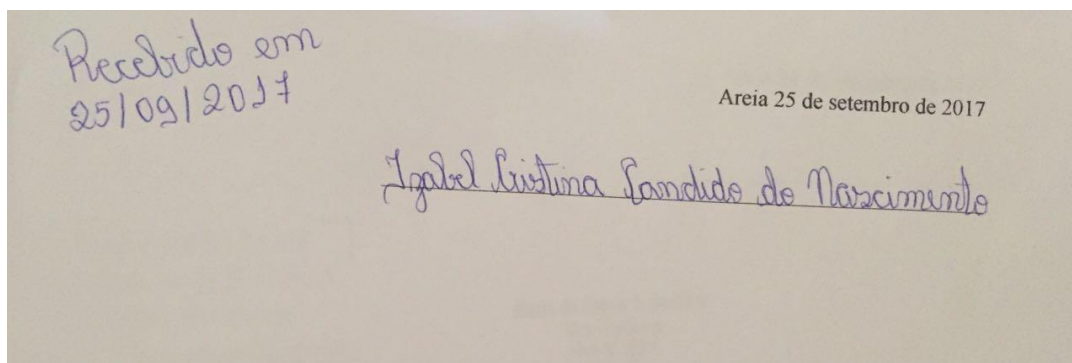 Recebido em
25/09/2017
Areia 25 de setembro de 2017
Izabel Cristina Candido do Nascimento